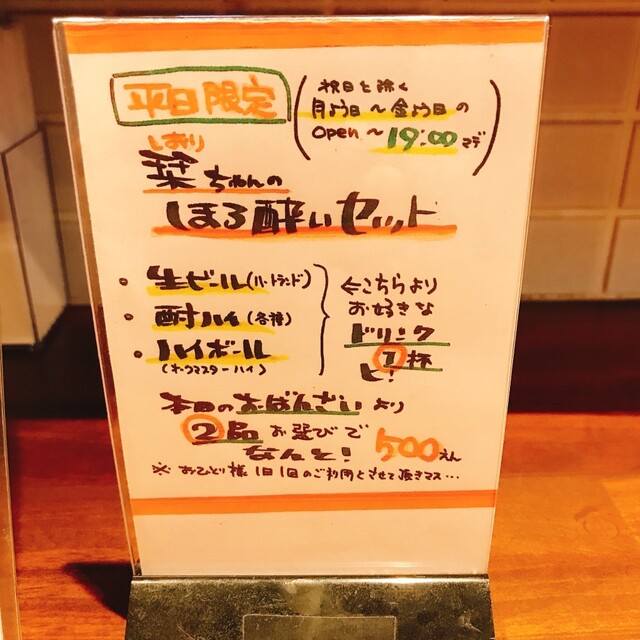 平日限定
(祝日を除く
月曜日〜金曜日の
Open〜19:00マデ)
しおり
栞ちゃんの
ほろ酔いセット
・生ビール(ハートランド)
・酎ハイ(各種)
・ハイボール
(ウォーターハイ)
←こちらより
お好きな
ドリンク
1杯
と!
本日のおばんざいより
2品お選びで
なんと! 500えん
※おひとり様1日1回のご利用とさせて頂きマス…